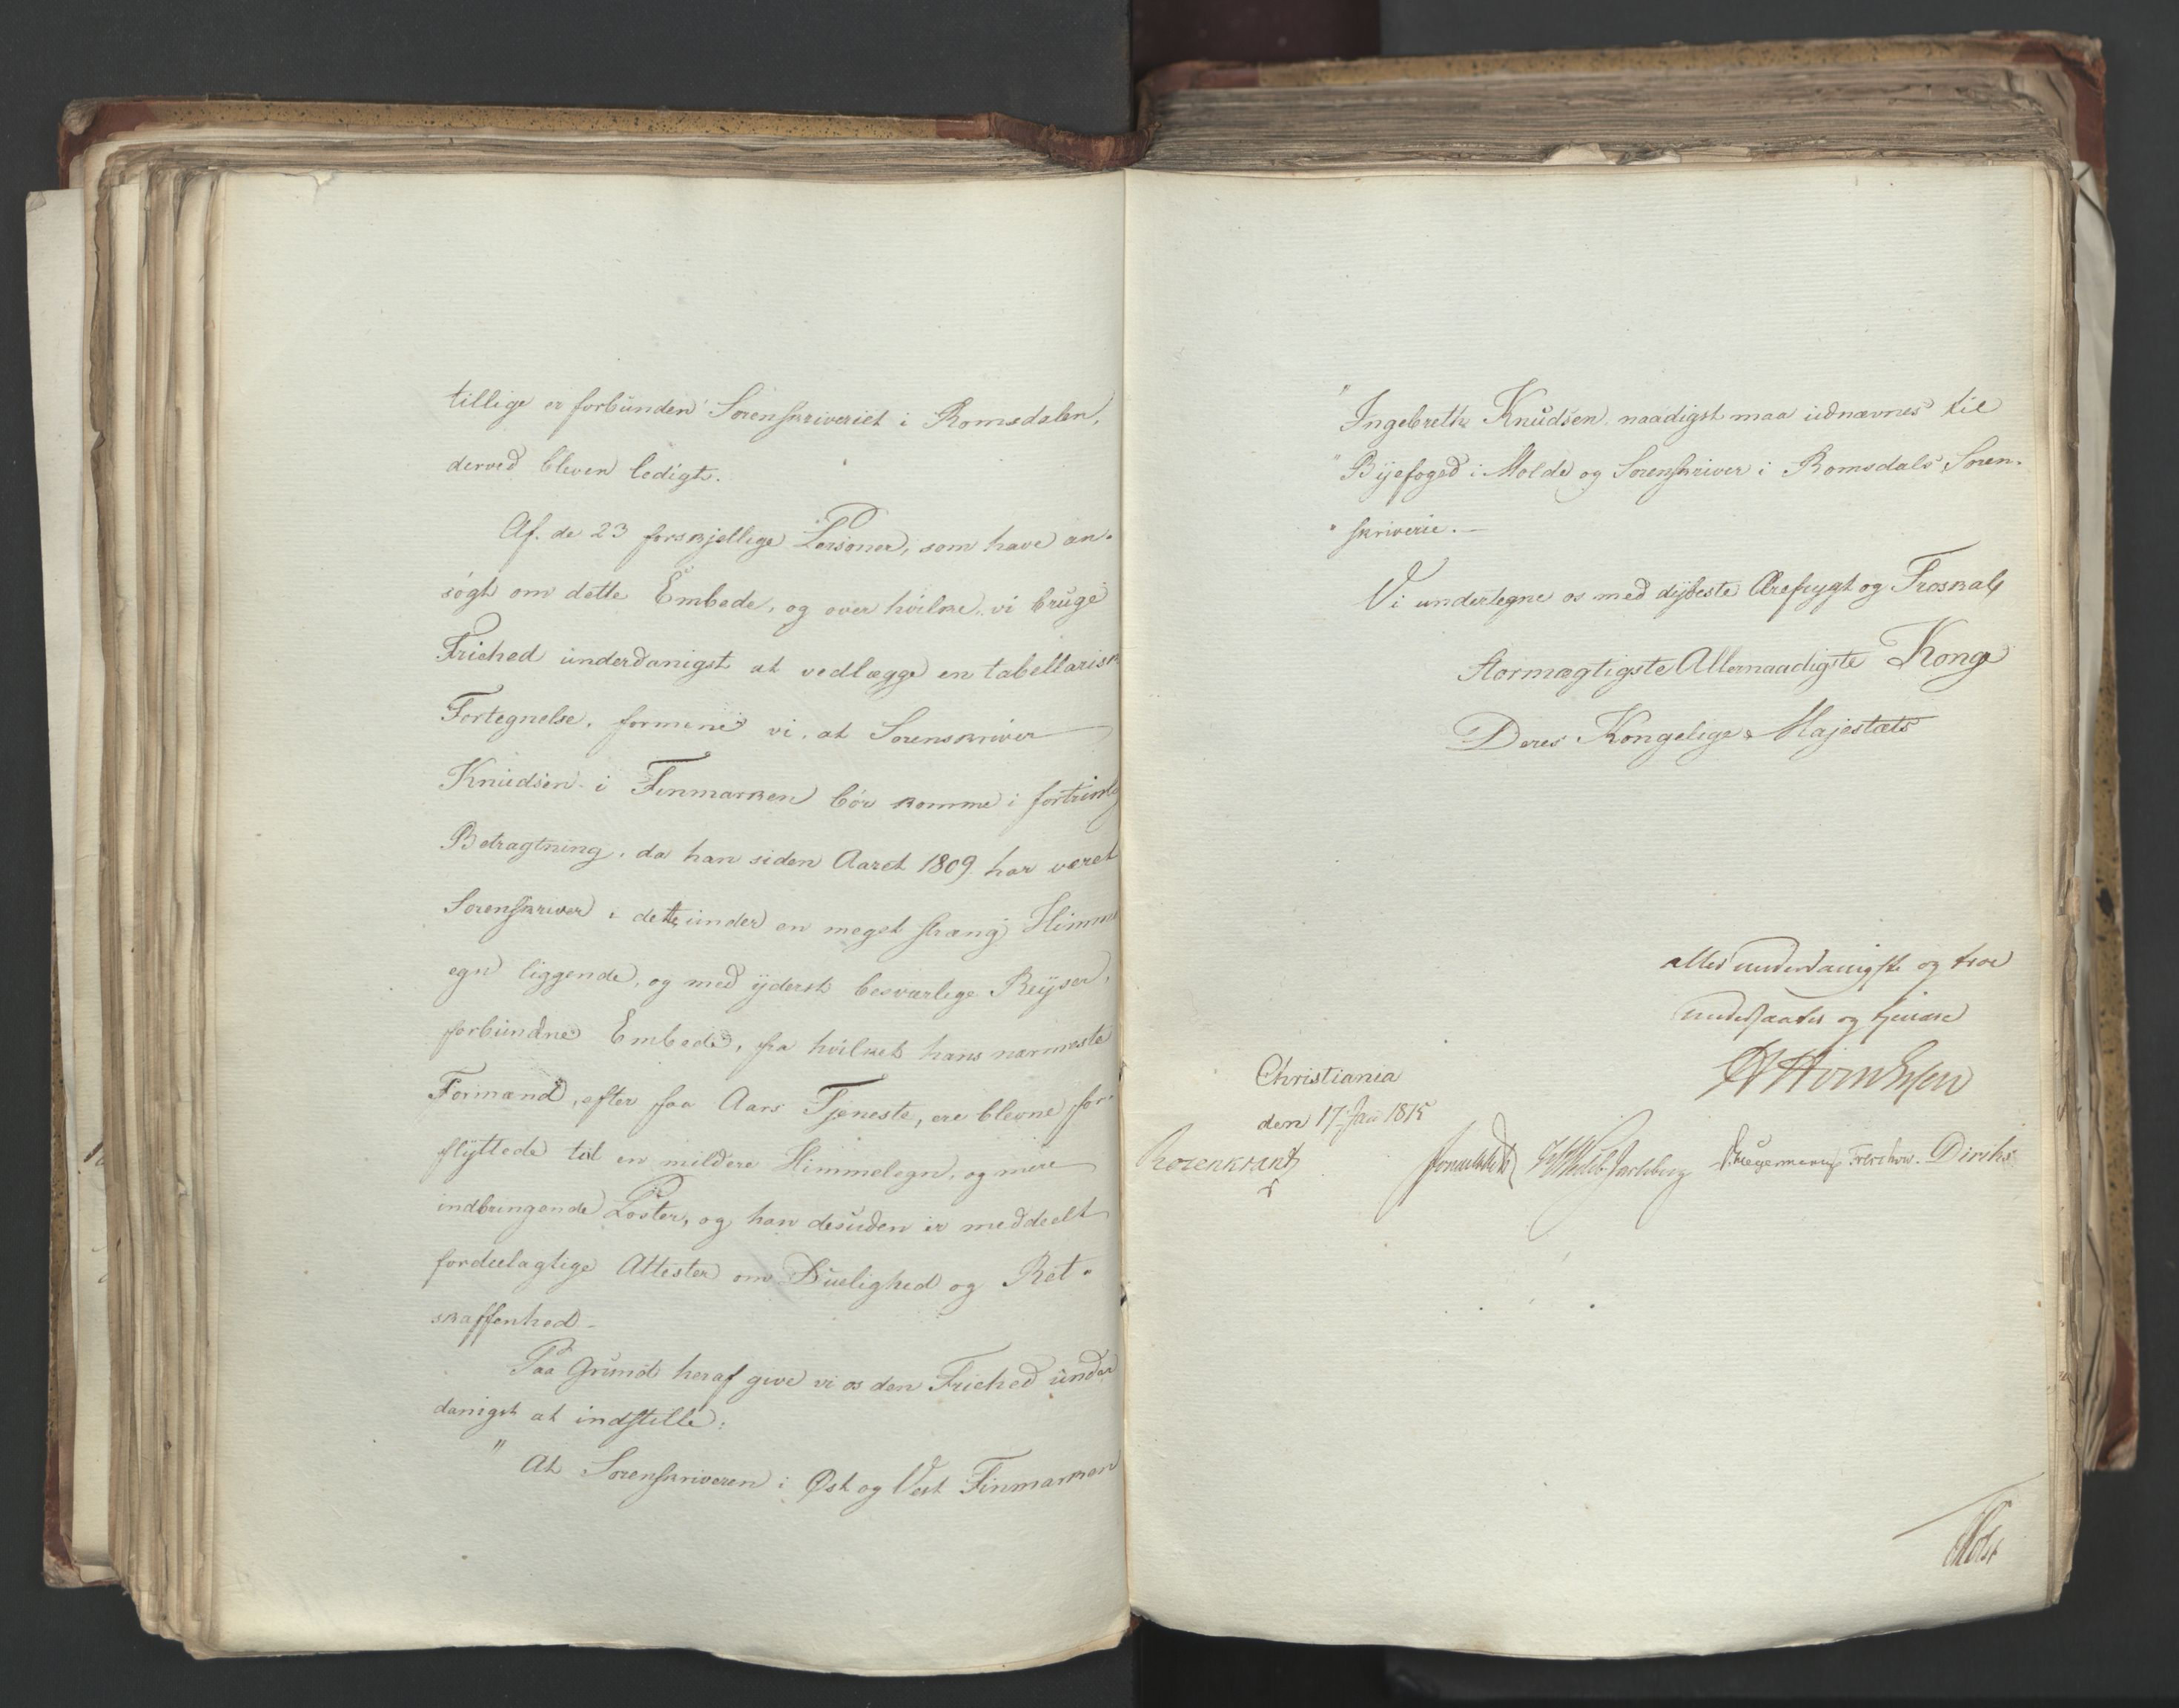 tillige er forbunden Sorenskriveriet i Romsdalen,
derved bleven ledigt.
Af de 23 forskjellige Personer, som have an-
søgt om dette Embede, og over hvilke vi bruge
Friehed underdanigst at vedlægge en tabellarisk
Fortegnelse, formene vi, at Sorenskriver
Knudsen i Finmarken bör komme i fortrinlig
Betragtning, da han siden Aaret 1809 har været
Sorenskriver i dette under en meget stræng Himmel
egn liggende, og med yderst besværlige Reyser,
forbundne Embede, fra hvilket hans nærmeste
Formænd, efter faa Aars Tjeneste, ere blevne for-
flyttede til en mildere Himmelegn, og mere
indbringende Poster, og han desuden er meddeelt
fordeelagtige Attester om Duelighed og Ret-
skaffenhed.
Paa Grund heraf give vi os den Friehed under
danigst at indstille:
" At Sorenskriveren i Øst og Vest Finmarken
" Ingebreth Knudsen naadigst maa udnævnes til
" Byefoged i Molde og Sorenskriver i Romsdals Soren-
" skriverie.—
Vi undertegne os med dybeste Ærefrygt og Troskab
Stormægtigste Allernaadigste Konge
Deres Kongelige Majestæts
allerunderdanigste og troe
undersaatter og tjenere
Christiania
den 17 Jan 1815
Rosenkrantz
Diriks
Holst